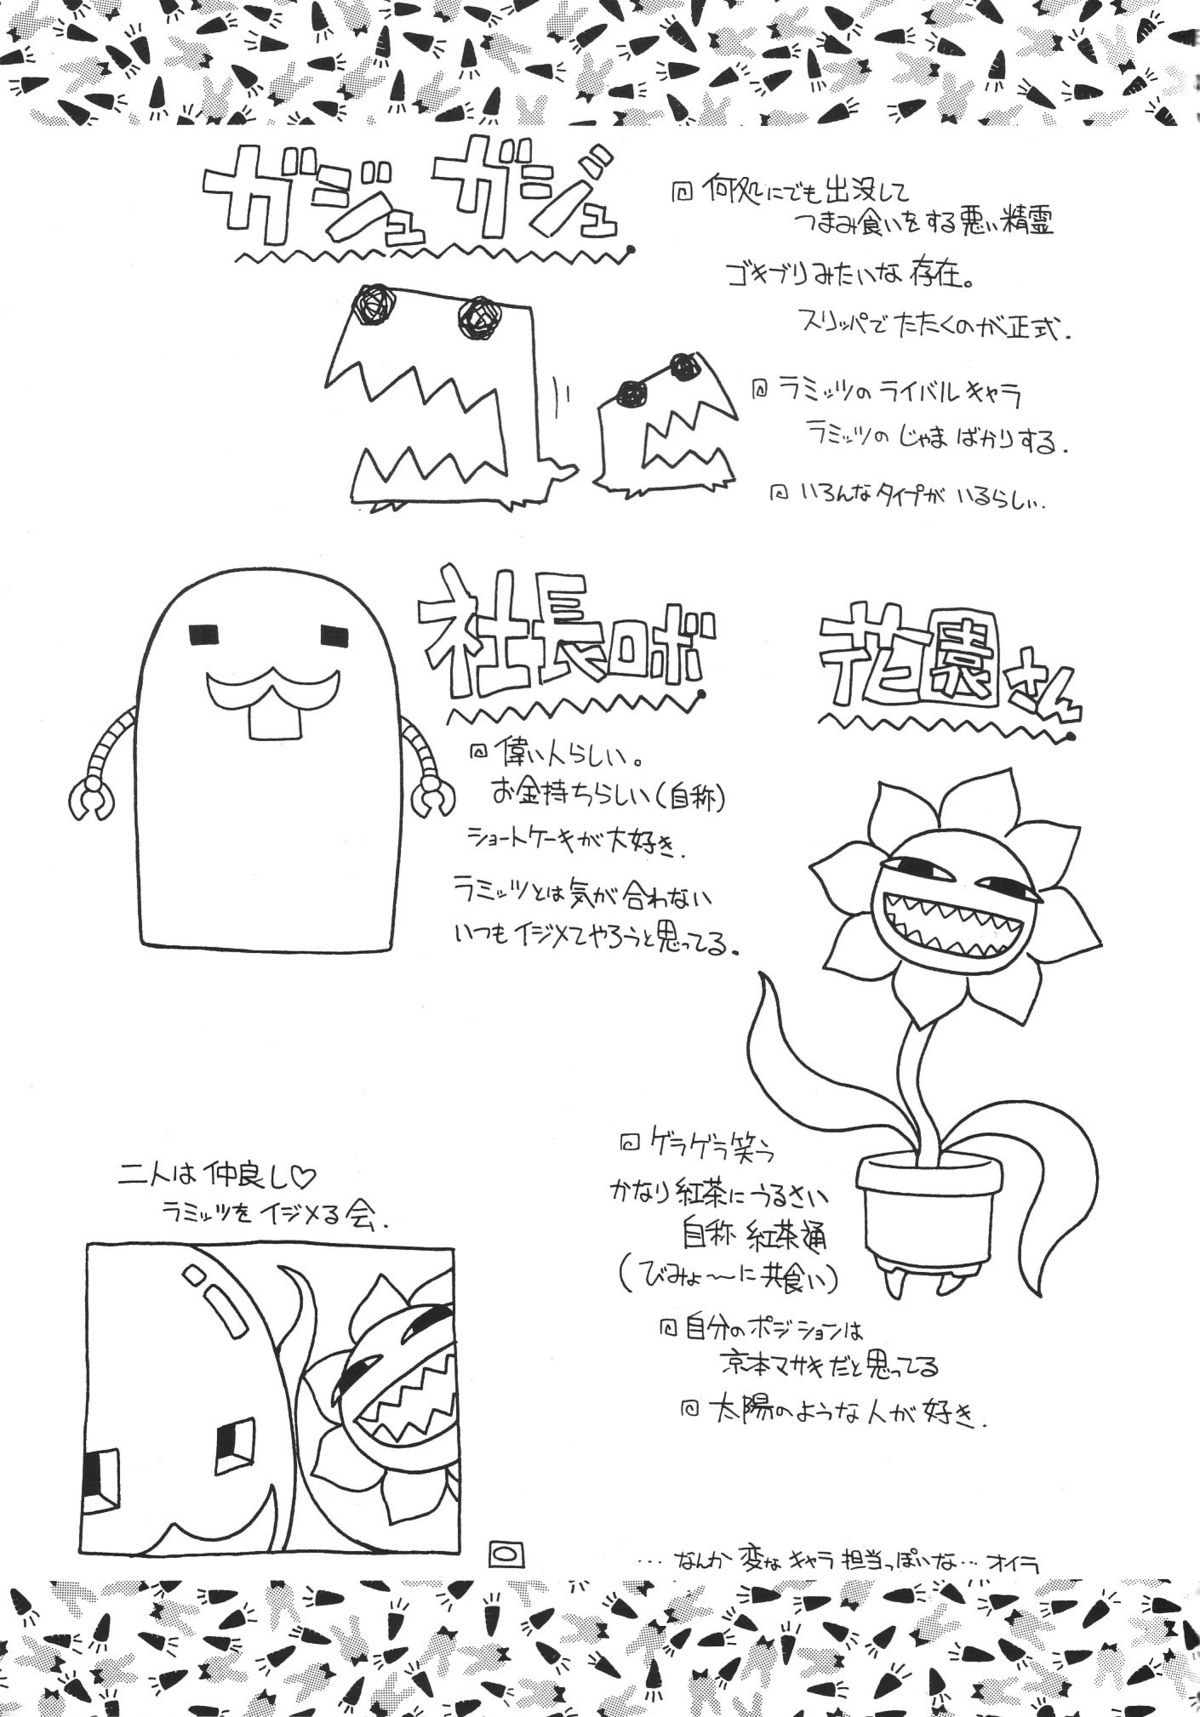 ガジュガジュ
何処にでも出没して
つまみ食いをする悪い精霊
ゴキブリみたいな存在。
スリッパでたたくのが正式.
ラミッツのライバルキャラ
ラミッツのじゃまばかりする.
いろんなタイプがいるらしい.
社長ロボ
偉い人らしい。
お金持ちらしい(自称)
ショートケーキが大好き.
ラミッツとは気が合わない
いつもイジメてやろうと思ってる.
花園さん
ゲラゲラ笑う
かなり紅茶にうるさい
自称 紅茶通
(びみょ〜に共食い)
自分のポジションは
京本マサキだと思ってる
太陽のような人が好き.
二人は仲良し♡
ラミッツをイジメる会.
…なんか変なキャラ担当っぽいな…オイラ